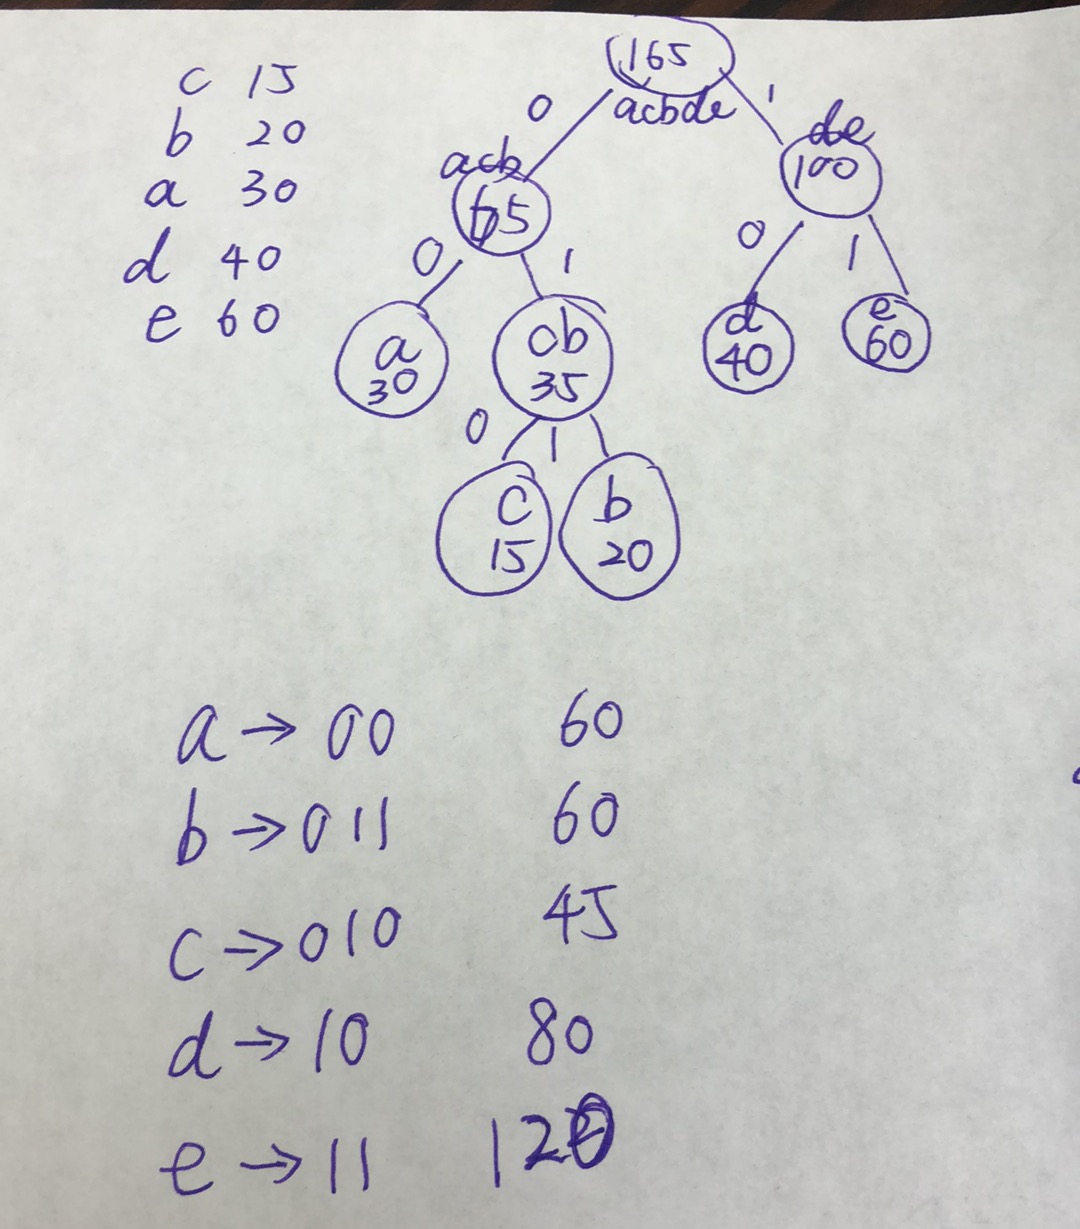 c 15
b 20
a 30
d 40
e 60
165
acbde
0
1
acb
65
de
100
0
1
0
1
a
30
cb
35
d
40
e
60
0
1
c
15
b
20
a → 00 60
b → 011 60
c → 010 45
d → 10 80
e → 11 120